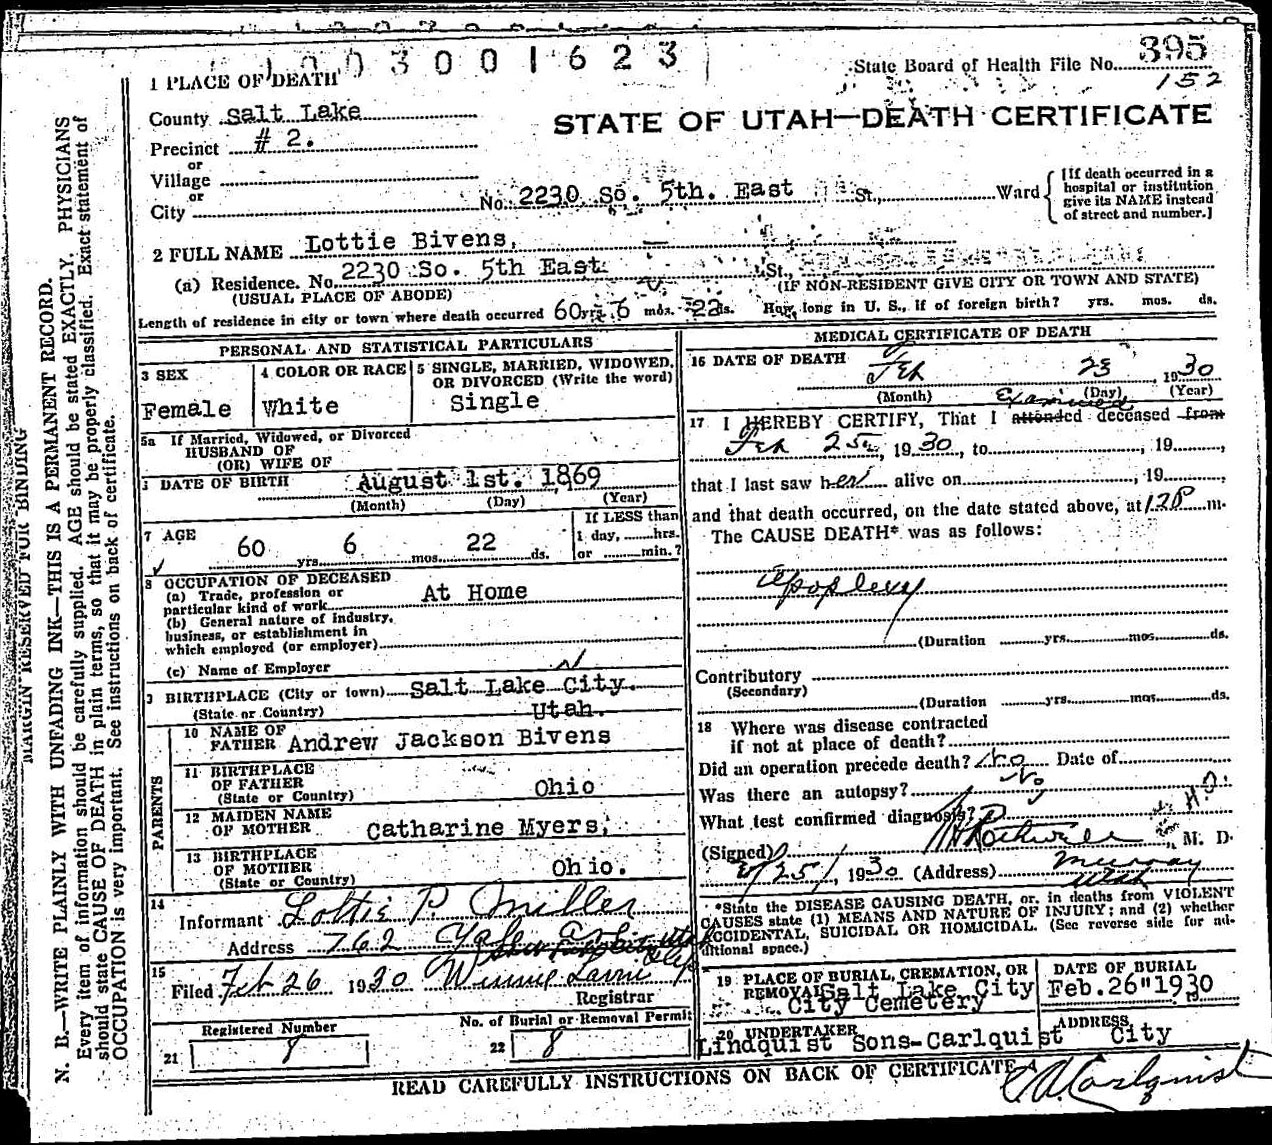 1003001623
395
State Board of Health File No.
152
1 PLACE OF DEATH
STATE OF UTAH—DEATH CERTIFICATE
County Salt Lake
Precinct # 2.
or
Village
or
City
No. 2230 So. 5th. East St., Ward
[If death occurred in a
hospital or institution
give its NAME instead
of street and number.]
2 FULL NAME Lottie Bivens,
(a) Residence. No. 2230 So. 5th East St.,
(USUAL PLACE OF ABODE)
(IF NON-RESIDENT GIVE CITY OR TOWN AND STATE)
Length of residence in city or town where death occurred 60 yrs. 6 mos. 22 ds. How long in U. S., if of foreign birth? yrs. mos. ds.
PERSONAL AND STATISTICAL PARTICULARS
3 SEX
Female
4 COLOR OR RACE
White
5 SINGLE, MARRIED, WIDOWED,
OR DIVORCED (Write the word)
Single
5a If Married, Widowed, or Divorced
HUSBAND OF
(OR) WIFE OF
DATE OF BIRTH August 1st. 1869
(Month) (Day) (Year)
7 AGE
60 yrs. 6 mos. 22 ds.
If LESS than
1 day, hrs.
or min.?
8 OCCUPATION OF DECEASED
(a) Trade, profession or
particular kind of work At Home
(b) General nature of industry,
business, or establishment in
which employed (or employer)
(c) Name of Employer
BIRTHPLACE (City or town) Salt Lake City.
(State or Country) Utah.
PARENTS
10 NAME OF
FATHER Andrew Jackson Bivens
11 BIRTHPLACE
OF FATHER
(State or Country) Ohio
12 MAIDEN NAME
OF MOTHER Catharine Myers,
13 BIRTHPLACE
OF MOTHER
(State or Country) Ohio.
14
Informant Lottie P. Miller
Address 762
15
Filed Feb 26 1930 Winnie
Registrar
21 Registered Number
8
22 No. of Burial or Removal Permit
8
MEDICAL CERTIFICATE OF DEATH
16 DATE OF DEATH
Feb 23 1930
(Month) (Day) (Year)
Examined
17 I HEREBY CERTIFY, That I attended deceased from
Feb 25, 1930, to , 19
that I last saw her alive on , 19
and that death occurred, on the date stated above, at 12P m.
The CAUSE DEATH* was as follows:
Apoplexy
(Duration yrs. mos. ds.
Contributory
(Secondary)
(Duration yrs. mos. ds.
18 Where was disease contracted
if not at place of death?
Did an operation precede death? No Date of
Was there an autopsy? No
What test confirmed diagnosis?
H.O.
(Signed) Rothwell, M. D.
2/25/, 1930 (Address) Murray
Utah
*State the DISEASE CAUSING DEATH, or, in deaths from VIOLENT
CAUSES state (1) MEANS AND NATURE OF INJURY; and (2) whether
ACCIDENTAL, SUICIDAL OR HOMICIDAL. (See reverse side for ad-
ditional space.)
19 PLACE OF BURIAL, CREMATION, OR
REMOVAL Salt Lake City
City Cemetery
DATE OF BURIAL
Feb. 26" 1930
20 UNDERTAKER
Lindquist Sons-Carlquist
ADDRESS
City
READ CAREFULLY INSTRUCTIONS ON BACK OF CERTIFICATE
Carlquist
MARGIN RESERVED FOR BINDING
N. B.—WRITE PLAINLY WITH UNFADING INK—THIS IS A PERMANENT RECORD.
Every item of information should be carefully supplied. AGE should be stated EXACTLY. PHYSICIANS
should state CAUSE OF DEATH in plain terms, so that it may be properly classified. Exact statement of
OCCUPATION is very important. See instructions on back of certificate.